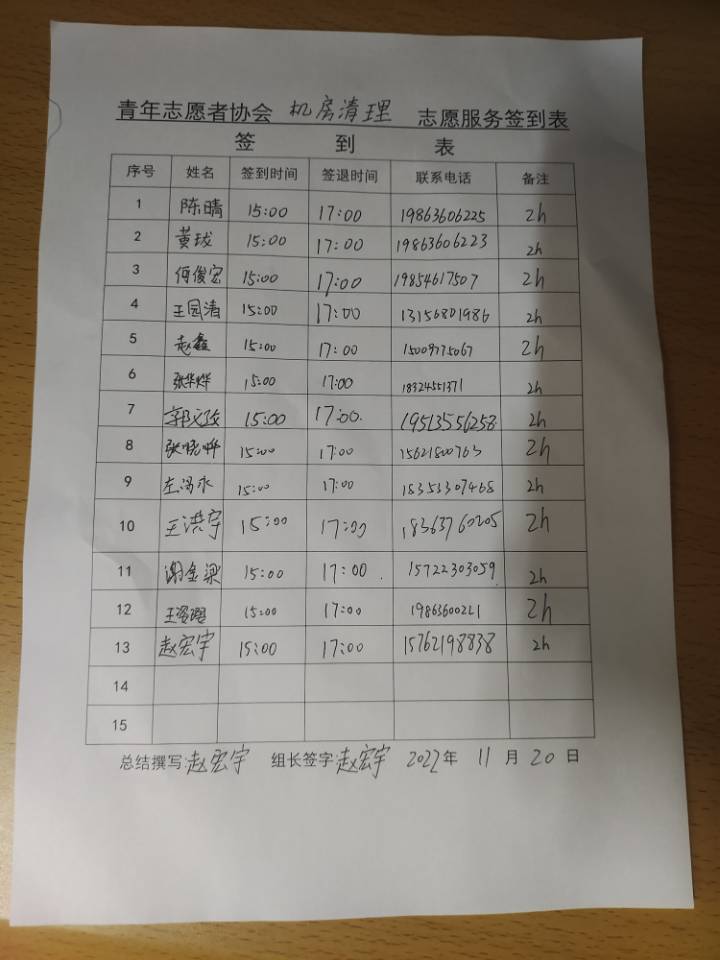 青年志愿者协会 机房清理 志愿服务签到表
签 到 表
序号 姓名 签到时间 签退时间 联系电话 备注
1 陈晴 15:00 17:00 19863606225 2h
2 黄珑 15:00 17:00 19863606223 2h
3 何俊宏 15:00 17:00 19854617507 2h
4 王园清 15:00 17:00 13156801986 2h
5 赵鑫 15:00 17:00 15009775067 2h
6 张华烨 15:00 17:00 18324551371 2h
7 15:00 17:00. 19513556258 2h
8 张晓晔 15:00 17:00 15621800763 2h
9 15:00 17:00 15353307468 2h
10 王洪宇 15:00 17:00 18363760205 2h
11 谢金梁 15:00 17:00 . 15722303059 2h
12 15:00 17:00 2h
13 赵宏宇 15:00 17:00 15762198838 2h
14
15
总结撰写:赵宏宇 组长签字 赵宏宇 2022年 11 月 20 日